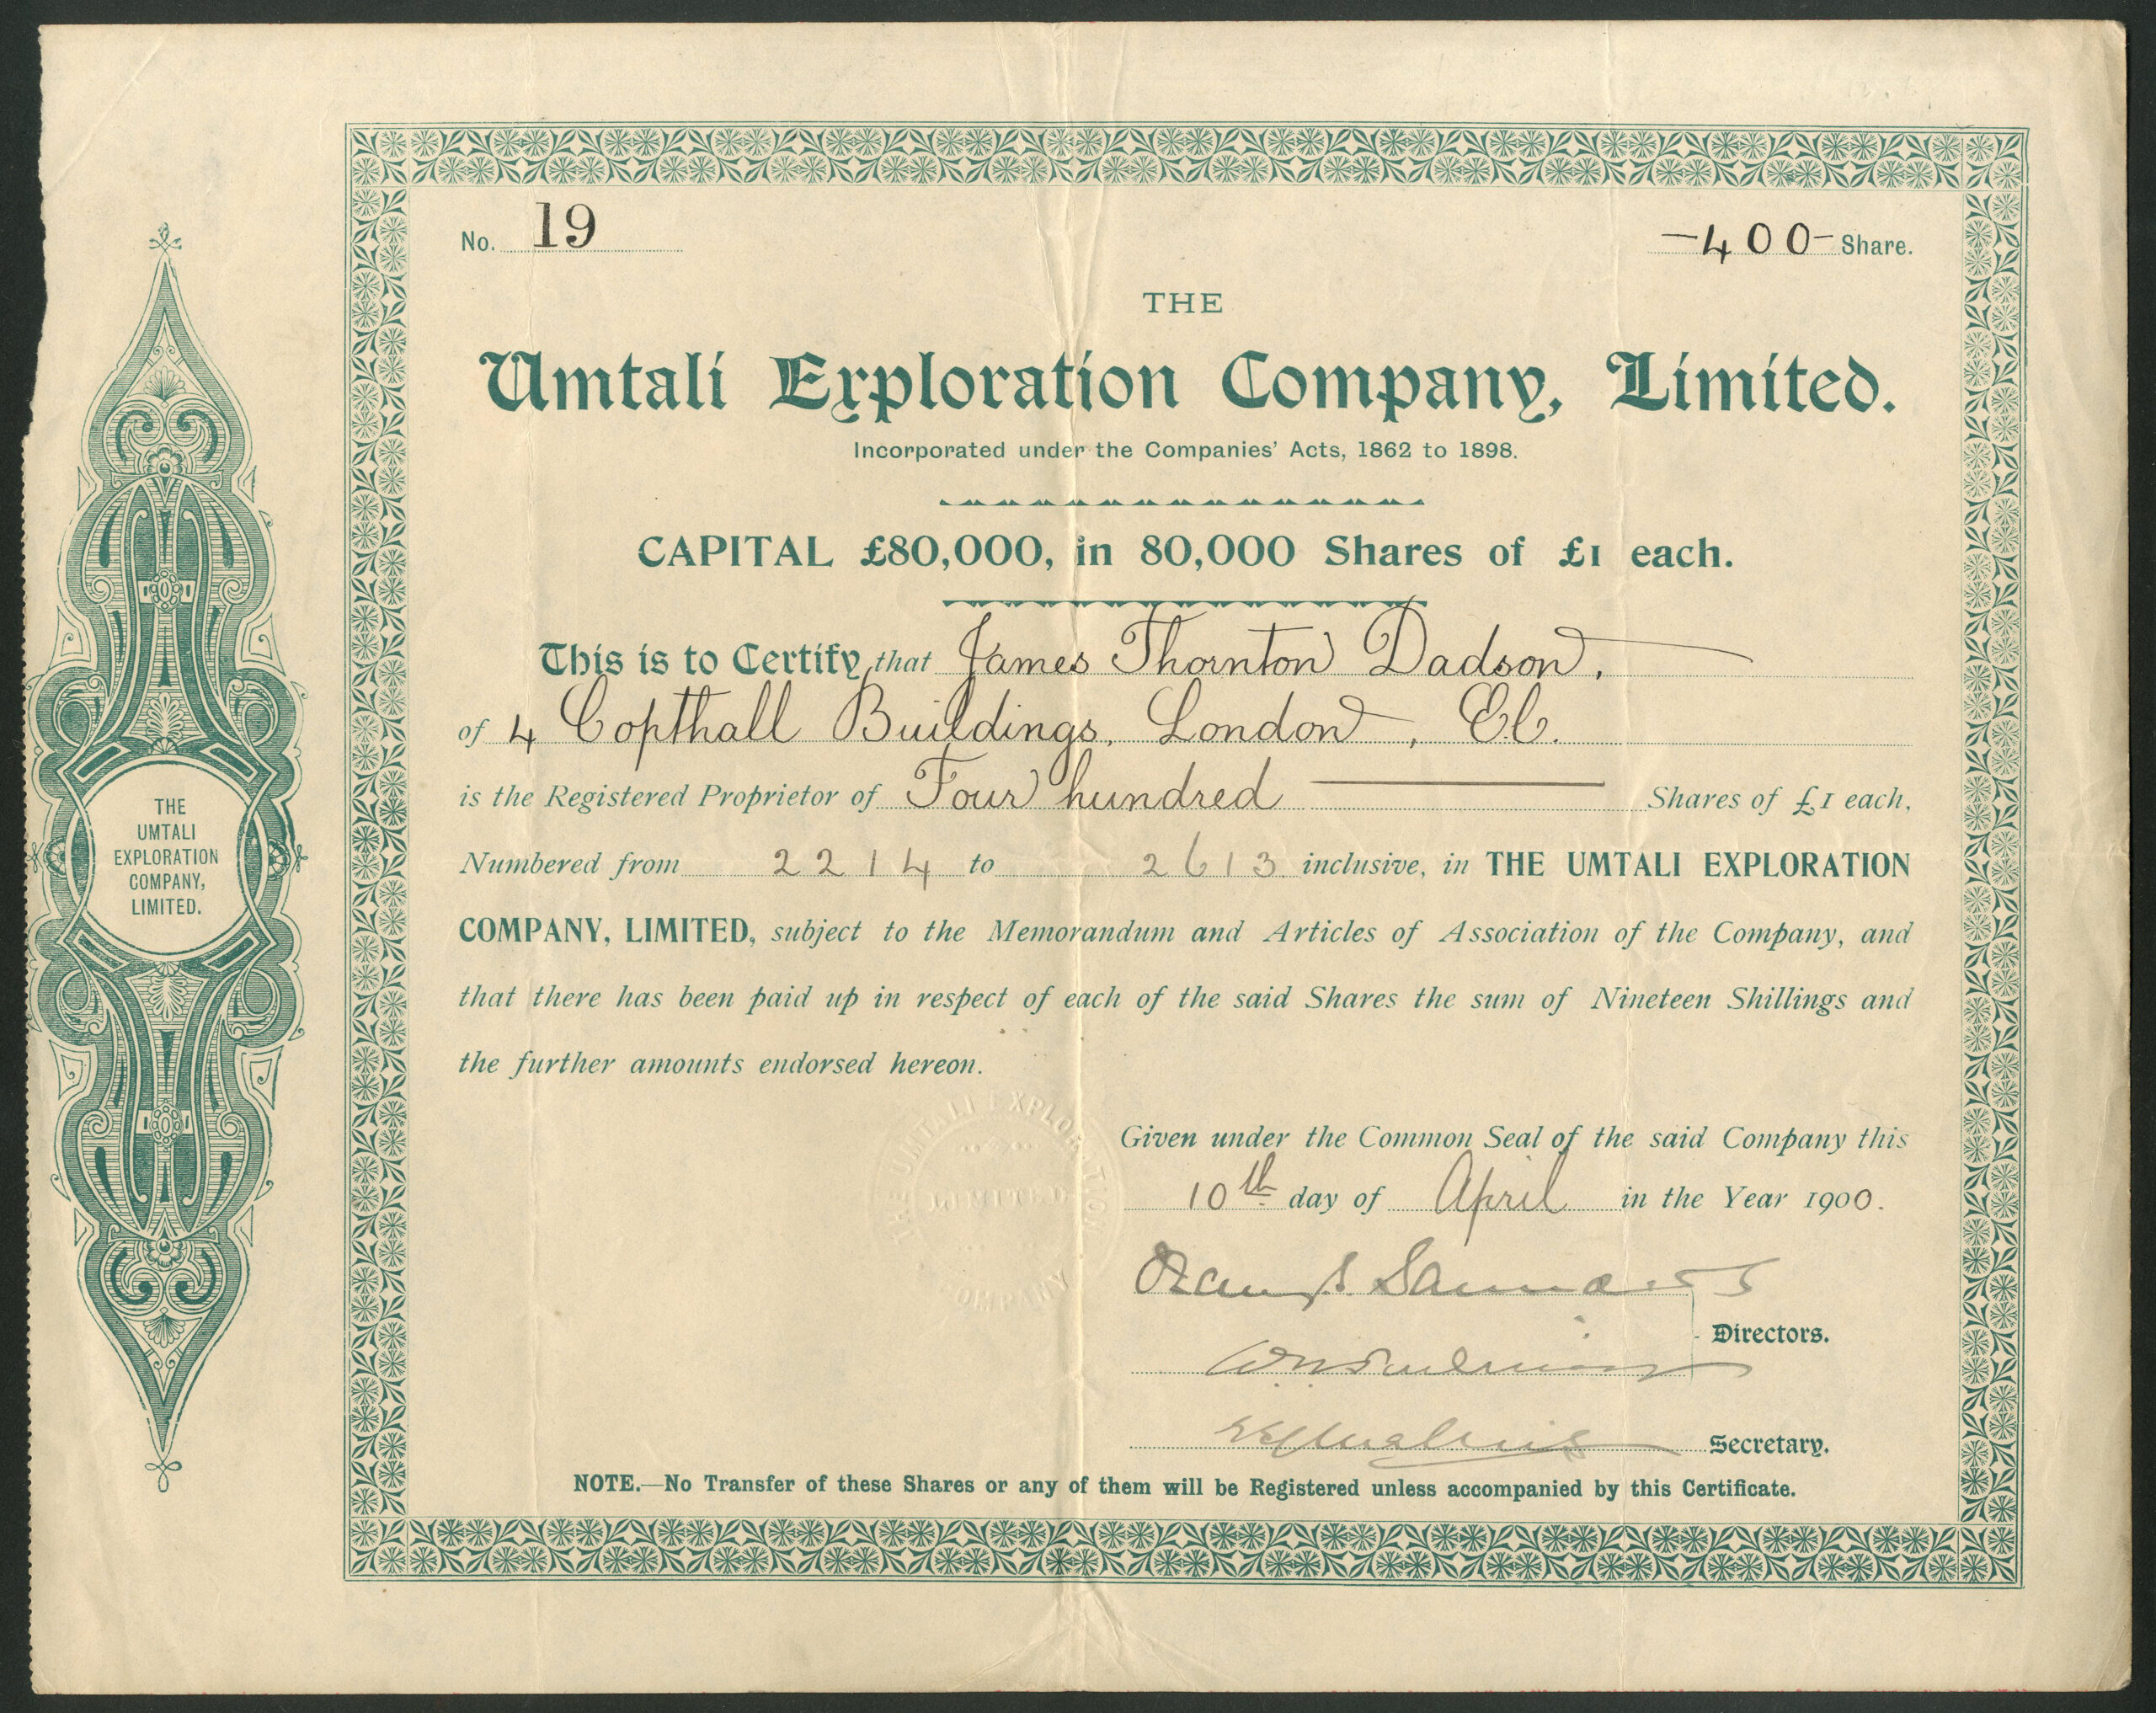 No. 19
-400- Share.
THE
Umtali Exploration Company, Limited.
Incorporated under the Companies' Acts, 1862 to 1898.
CAPITAL £80,000, in 80,000 Shares of £1 each.
This is to Certify that James Thornton Dadson,
of 4 Copthall Buildings, London, E.C.
is the Registered Proprietor of Four hundred Shares of £1 each,
Numbered from 2214 to 2613 inclusive, in THE UMTALI EXPLORATION
COMPANY, LIMITED, subject to the Memorandum and Articles of Association of the Company, and
that there has been paid up in respect of each of the said Shares the sum of Nineteen Shillings and
the further amounts endorsed hereon.
Given under the Common Seal of the said Company this
10th day of April in the Year 1900.
Directors.
Secretary.
NOTE.—No Transfer of these Shares or any of them will be Registered unless accompanied by this Certificate.
THE
UMTALI
EXPLORATION
COMPANY,
LIMITED.
THE UMTALI EXPLORATION
LIMITED
COMPANY